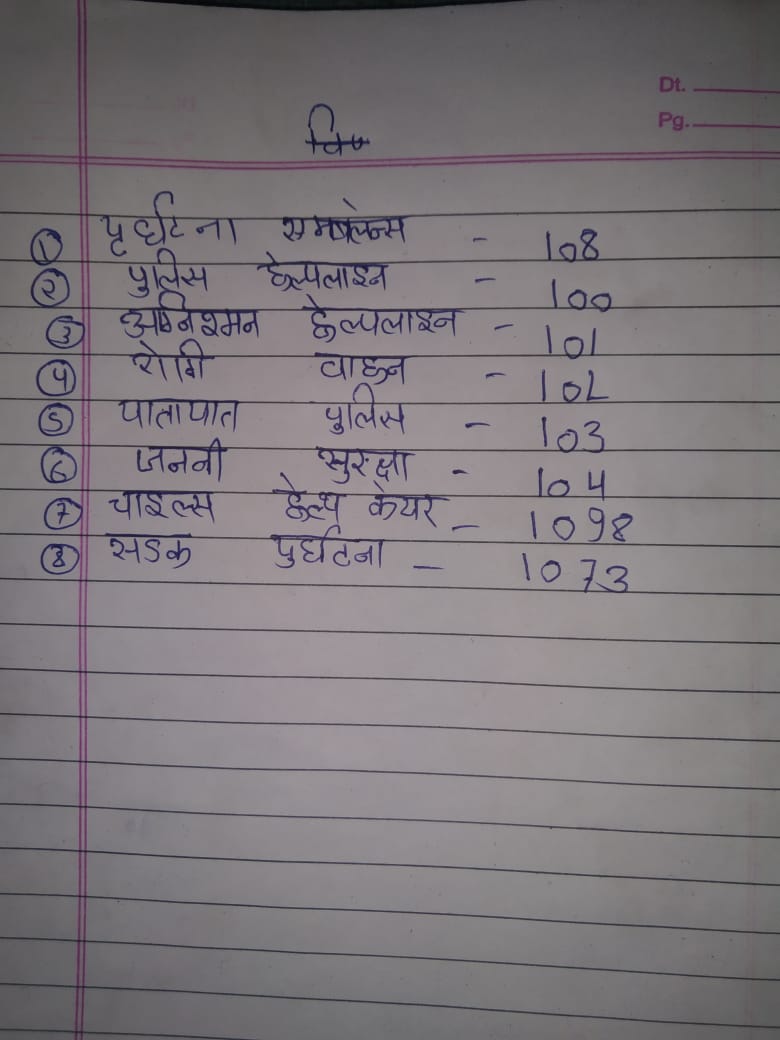 Dt.
Pg.
① पृर्घटना एमब्लेन्स - 108
② पुलिस हेल्पलाइन - 100
③ अग्निशमन हेल्पलाइन - 101
④ रोगी वाहन - 102
⑤ यातायात पुलिस - 103
⑥ जननी सुरक्षा - 104
⑦ चाइल्स हेल्थ केयर - 1098
⑧ सडक पुर्घटना - 1073